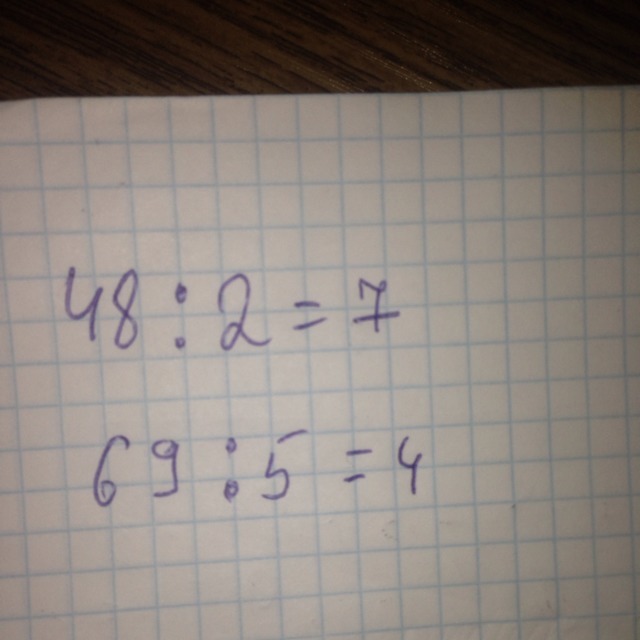 48:2=7
69:5=4